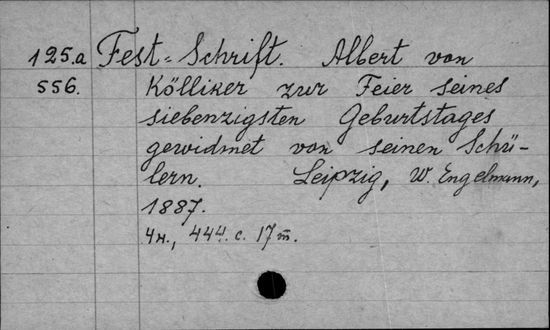 125.a Fest-Schrift. Albert von
556. Kölliker zur Feier seines
siebenzigsten Geburtstages
gewidmet von seinen Schü-
lern. Leipzig, W. Engelmann,
1887.
4н., 444. с. 17 т.